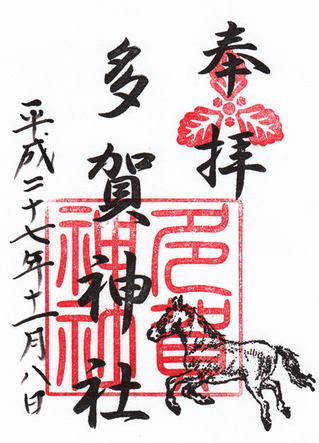 奉拝
多賀神社
多賀神社
平成二十七年十一月八日